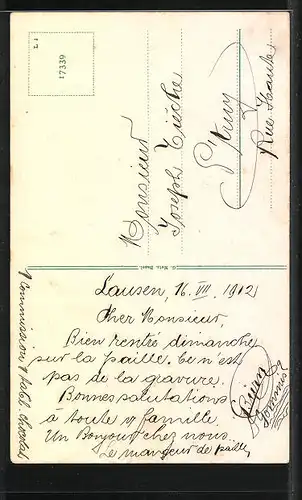 17339
Monsieur
Joseph Tièche
St Imy
Rue Haute
Lausen, 16. VII. 1912
Cher Monsieur,
Bien rentré dimanche
sur la paille. Ce n'est
pas de la gravure.
Bonnes salutations
à toute v famille.
Un Bonjour chez nous.
Le mangeur de paille